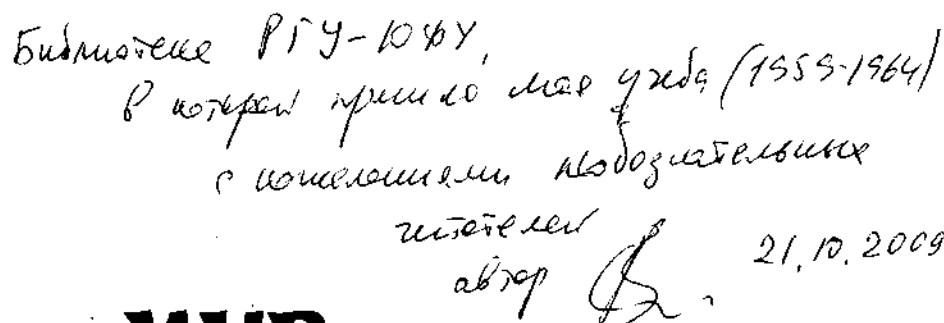 Библиотеке РГУ-ЮФУ,
в которой прошла моя учёба (1959-1964)
с пожеланиями любознательных
читателей
автор
21.10.2009